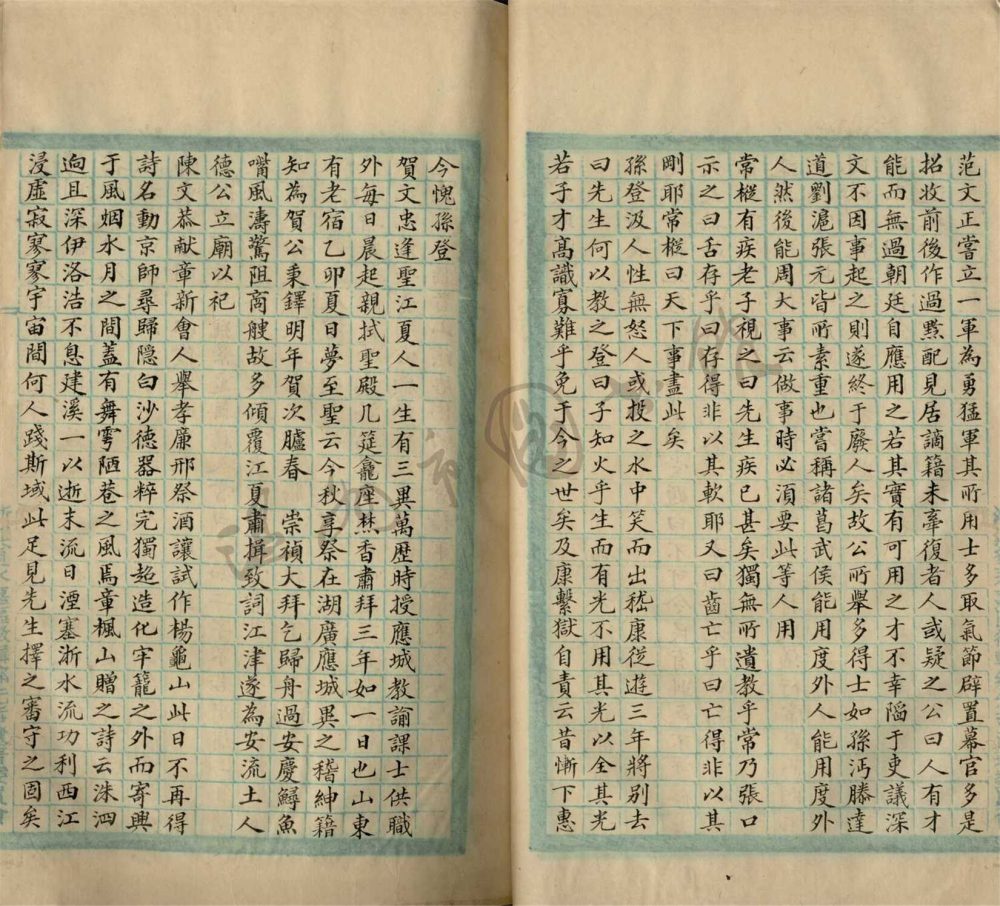 范文正嘗立一軍為勇猛軍其所用士多取氣節辟置幕官多是
招收前後作過黥配見居謫籍未牽復者人或疑之公曰人有才
能而無過朝廷自應用之若其實有可用之才不幸陷于吏議深
文不因事起之則遂終于廢人矣故公所舉多得士如孫沔滕達
道劉滬張元皆所素重也嘗稱諸葛武侯能用度外人能用度外
人然後能周大事云做事時必須要此等人用
常樅有疾老子視之曰先生疾已甚矣獨無所遺教乎常乃張口
示之曰舌存乎曰存得非以其軟耶又曰齒亡乎曰亡得非以其
剛耶常樅曰天下事盡此矣
孫登汲人性無怒人或投之水中笑而出嵇康從遊三年將别去
曰先生何以教之登曰子知火乎生而有光不用其光以全其光
若子才高識寡難乎免于今之世矣及康繫獄自責云昔慚下惠
今愧孫登
賀文忠逢聖江夏人一生有三異萬歷時授應城教諭課士供職
外每日晨起親拭聖殿几筵龕座焚香肅拜三年如一日也山東
有老宿乙卯夏日夢至聖云今秋享祭在湖廣應城異之稽紳籍
知為賀公秉鐸明年賀次臚春 崇禎大拜乞歸舟過安慶鱘魚
嘴風濤驚阻商艘故多傾覆江夏肅揖致詞江津遂為安流土人
德公立廟以祀
陳文恭献章新會人舉孝廉邢祭酒讓試作楊龜山此日不再得
詩名動京師尋歸隱白沙德器粹完獨超造化牢籠之外而寄興
于風烟水月之間蓋有舞雩陋巷之風焉章楓山贈之詩云洙泗
逈且深伊洛浩不息建溪一以逝末流日湮塞浙水流功利西江
浸虛寂寥寥宇宙間何人踐斯域此足見先生擇之審守之固矣